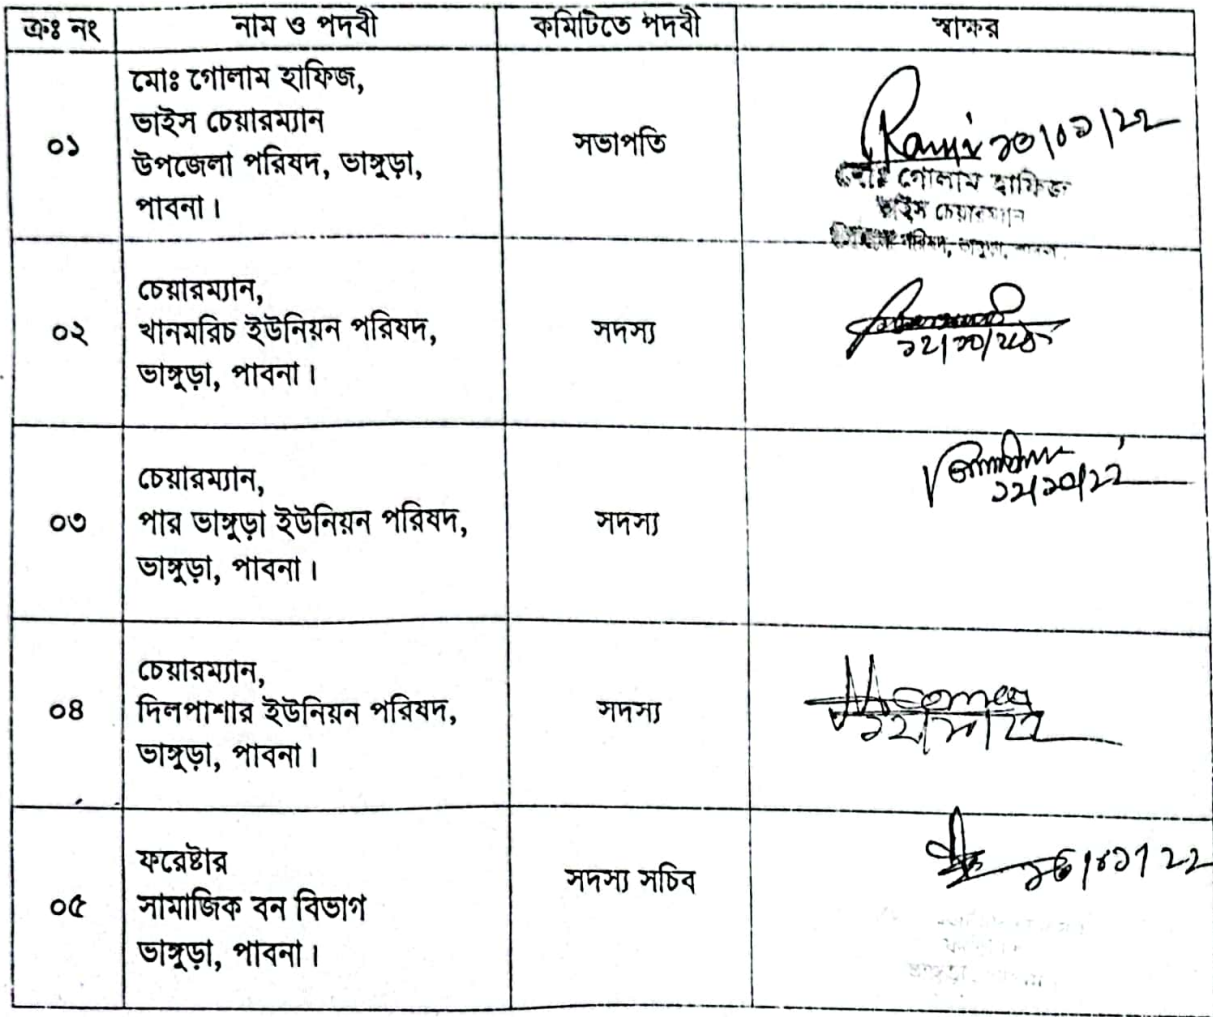 ক্রঃ নং নাম ও পদবী কমিটিতে পদবী স্বাক্ষর
০১ মোঃ গোলাম হাফিজ,
ভাইস চেয়ারম্যান
উপজেলা পরিষদ, ভাঙ্গুড়া,
পাবনা।
সভাপতি
মোঃ গোলাম হাফিজ
ভাইস চেয়ারম্যান
০২ চেয়ারম্যান,
খানমরিচ ইউনিয়ন পরিষদ,
ভাঙ্গুড়া, পাবনা।
সদস্য
০৩ চেয়ারম্যান,
পার ভাঙ্গুড়া ইউনিয়ন পরিষদ,
ভাঙ্গুড়া, পাবনা।
সদস্য
১২/১০/২২
০৪ চেয়ারম্যান,
দিলপাশার ইউনিয়ন পরিষদ,
ভাঙ্গুড়া, পাবনা।
সদস্য
১২/১০/২২
০৫ ফরেষ্টার
সামাজিক বন বিভাগ
ভাঙ্গুড়া, পাবনা।
সদস্য সচিব